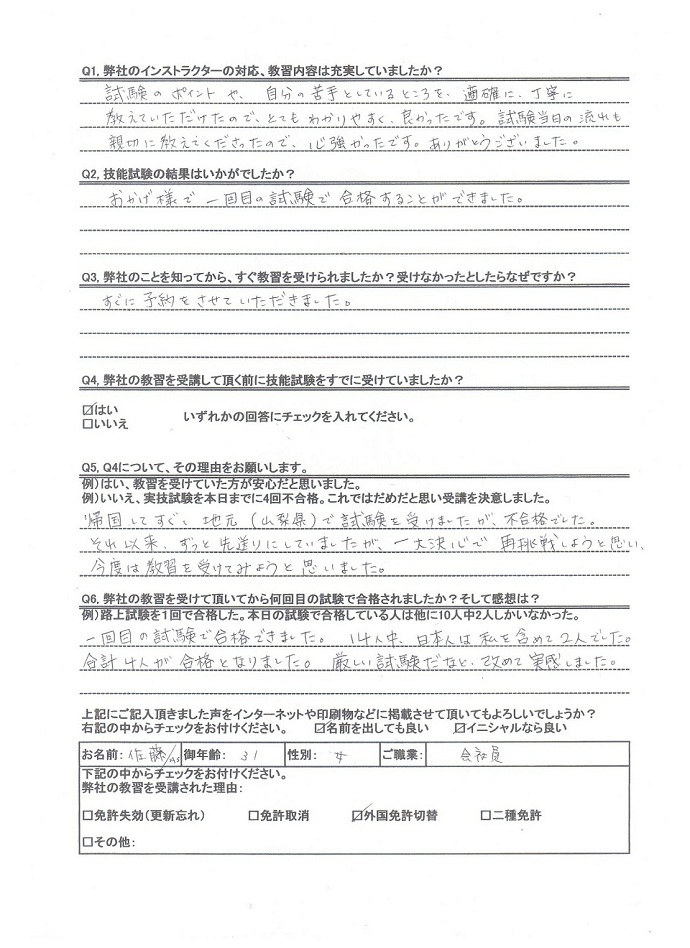 Q1, 弊社のインストラクターの対応、教習内容は充実していましたか？
試験のポイントや、自分の苦手としているところを、適確に、丁寧に
教えていただけたので、とてもわかりやすく、良かったです。試験当日の流れも
親切に教えてくださったので、心強かったです。ありがとうございました。
Q2, 技能試験の結果はいかがでしたか？
おかげ様で一回目の試験で合格することができました。
Q3, 弊社のことを知ってから、すぐ教習を受けられましたか？受けなかったとしたらなぜですか？
すぐに予約をさせていただきました。
Q4, 弊社の教習を受講して頂く前に技能試験をすでに受けていましたか？
☑はい
□いいえ いずれかの回答にチェックを入れてください。
Q5, Q4について、その理由をお願いします。
例）はい、教習を受けていた方が安心だと思いました。
例）いいえ、実技試験を本日までに4回不合格。これではだめだと思い受講を決意しました。
帰国してすぐ、地元（山梨県）で試験を受けましたが、不合格でした。
それ以来、ずっと先送りにしていましたが、一大決心で再挑戦しようと思い、
今度は教習を受けてみようと思いました。
Q6, 弊社の教習を受けて頂いてから何回目の試験で合格されましたか？そして感想は？
例）路上試験を1回で合格した。本日の試験で合格している人は他に10人中2人しかいなかった。
一回目の試験で合格できました。14人中、日本人は私を含めて2人でした。
合計4人が合格となりました。厳しい試験だなと、改めて実感しました。
上記にご記入頂きました声をインターネットや印刷物などに掲載させて頂いてもよろしいでしょうか？
右記の中からチェックをお付けください。 ☑名前を出しても良い ☑イニシャルなら良い
お名前： 佐藤 御年齢： 31 性別： 女 ご職業： 会社員
下記の中からチェックをお付けください。
弊社の教習を受講された理由：
□免許失効（更新忘れ） □免許取消 ☑外国免許切替 □二種免許
□その他：